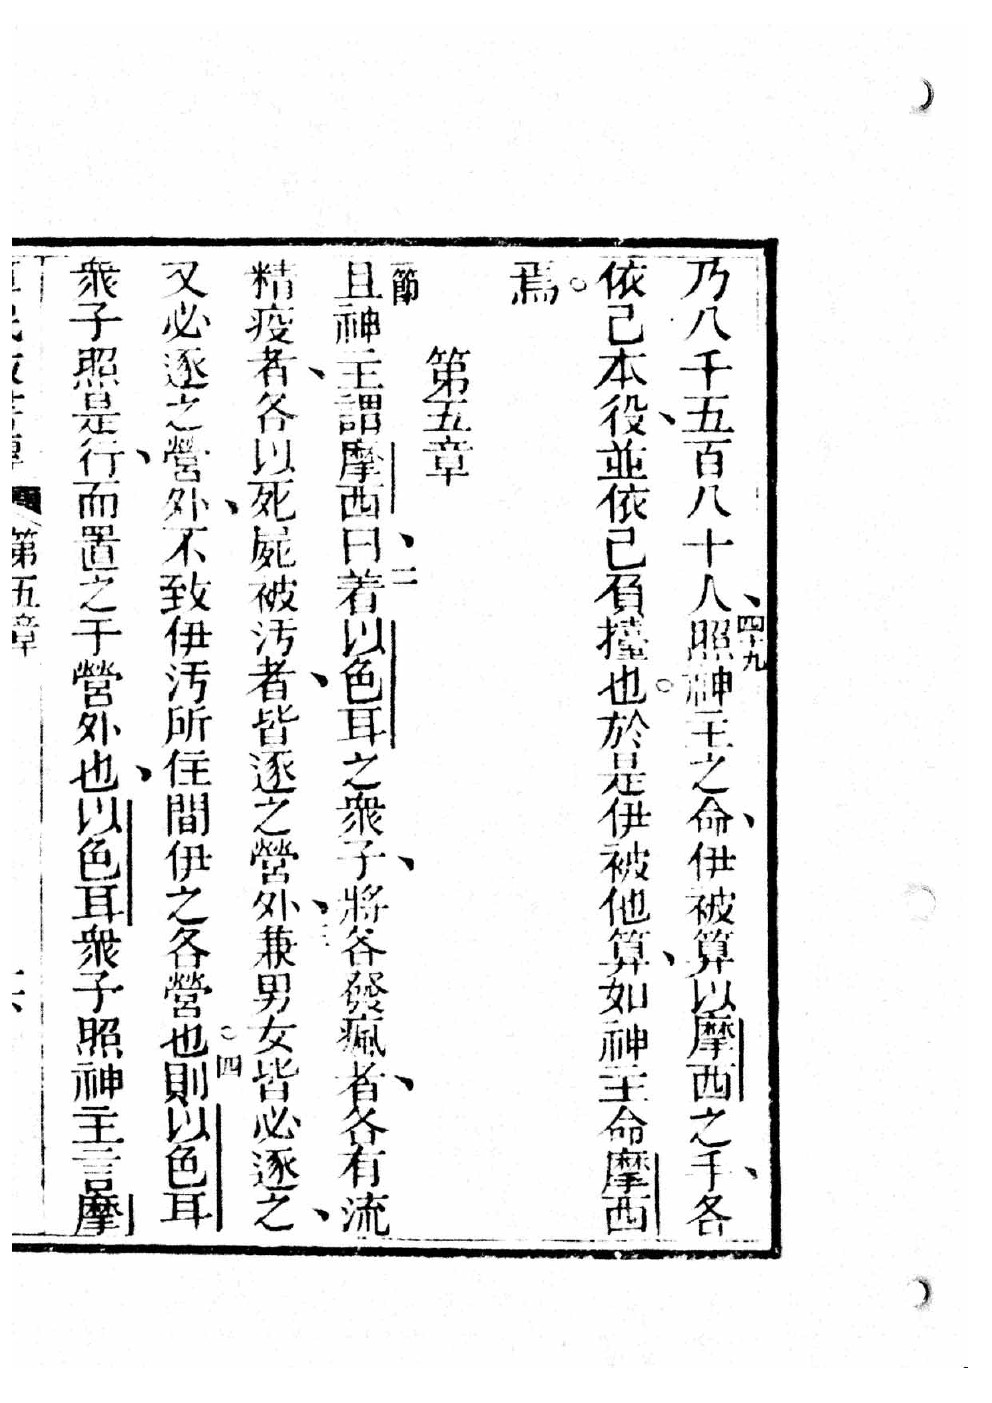 乃八千五百八十人、四十九照神主之命、伊被算以摩西之手、各
依己本役、並依己負擡也。於是伊被他算、如神主命摩西
焉。
第五章
節
且神主謂摩西曰、二着以色耳之衆子、將各發瘋者、各有流
精疫者、各以死屍被汚者、皆逐之營外、三兼男女皆必逐之、
又必逐之營外、不致伊汚所住間伊之各營也。四則以色耳
衆子照是行、而置之于營外也、以色耳衆子照神主言摩
第五章